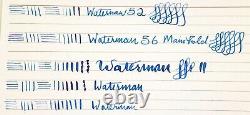 Waterman 52
Waterman 56 Manifold
Waterman
Waterman
Waterman